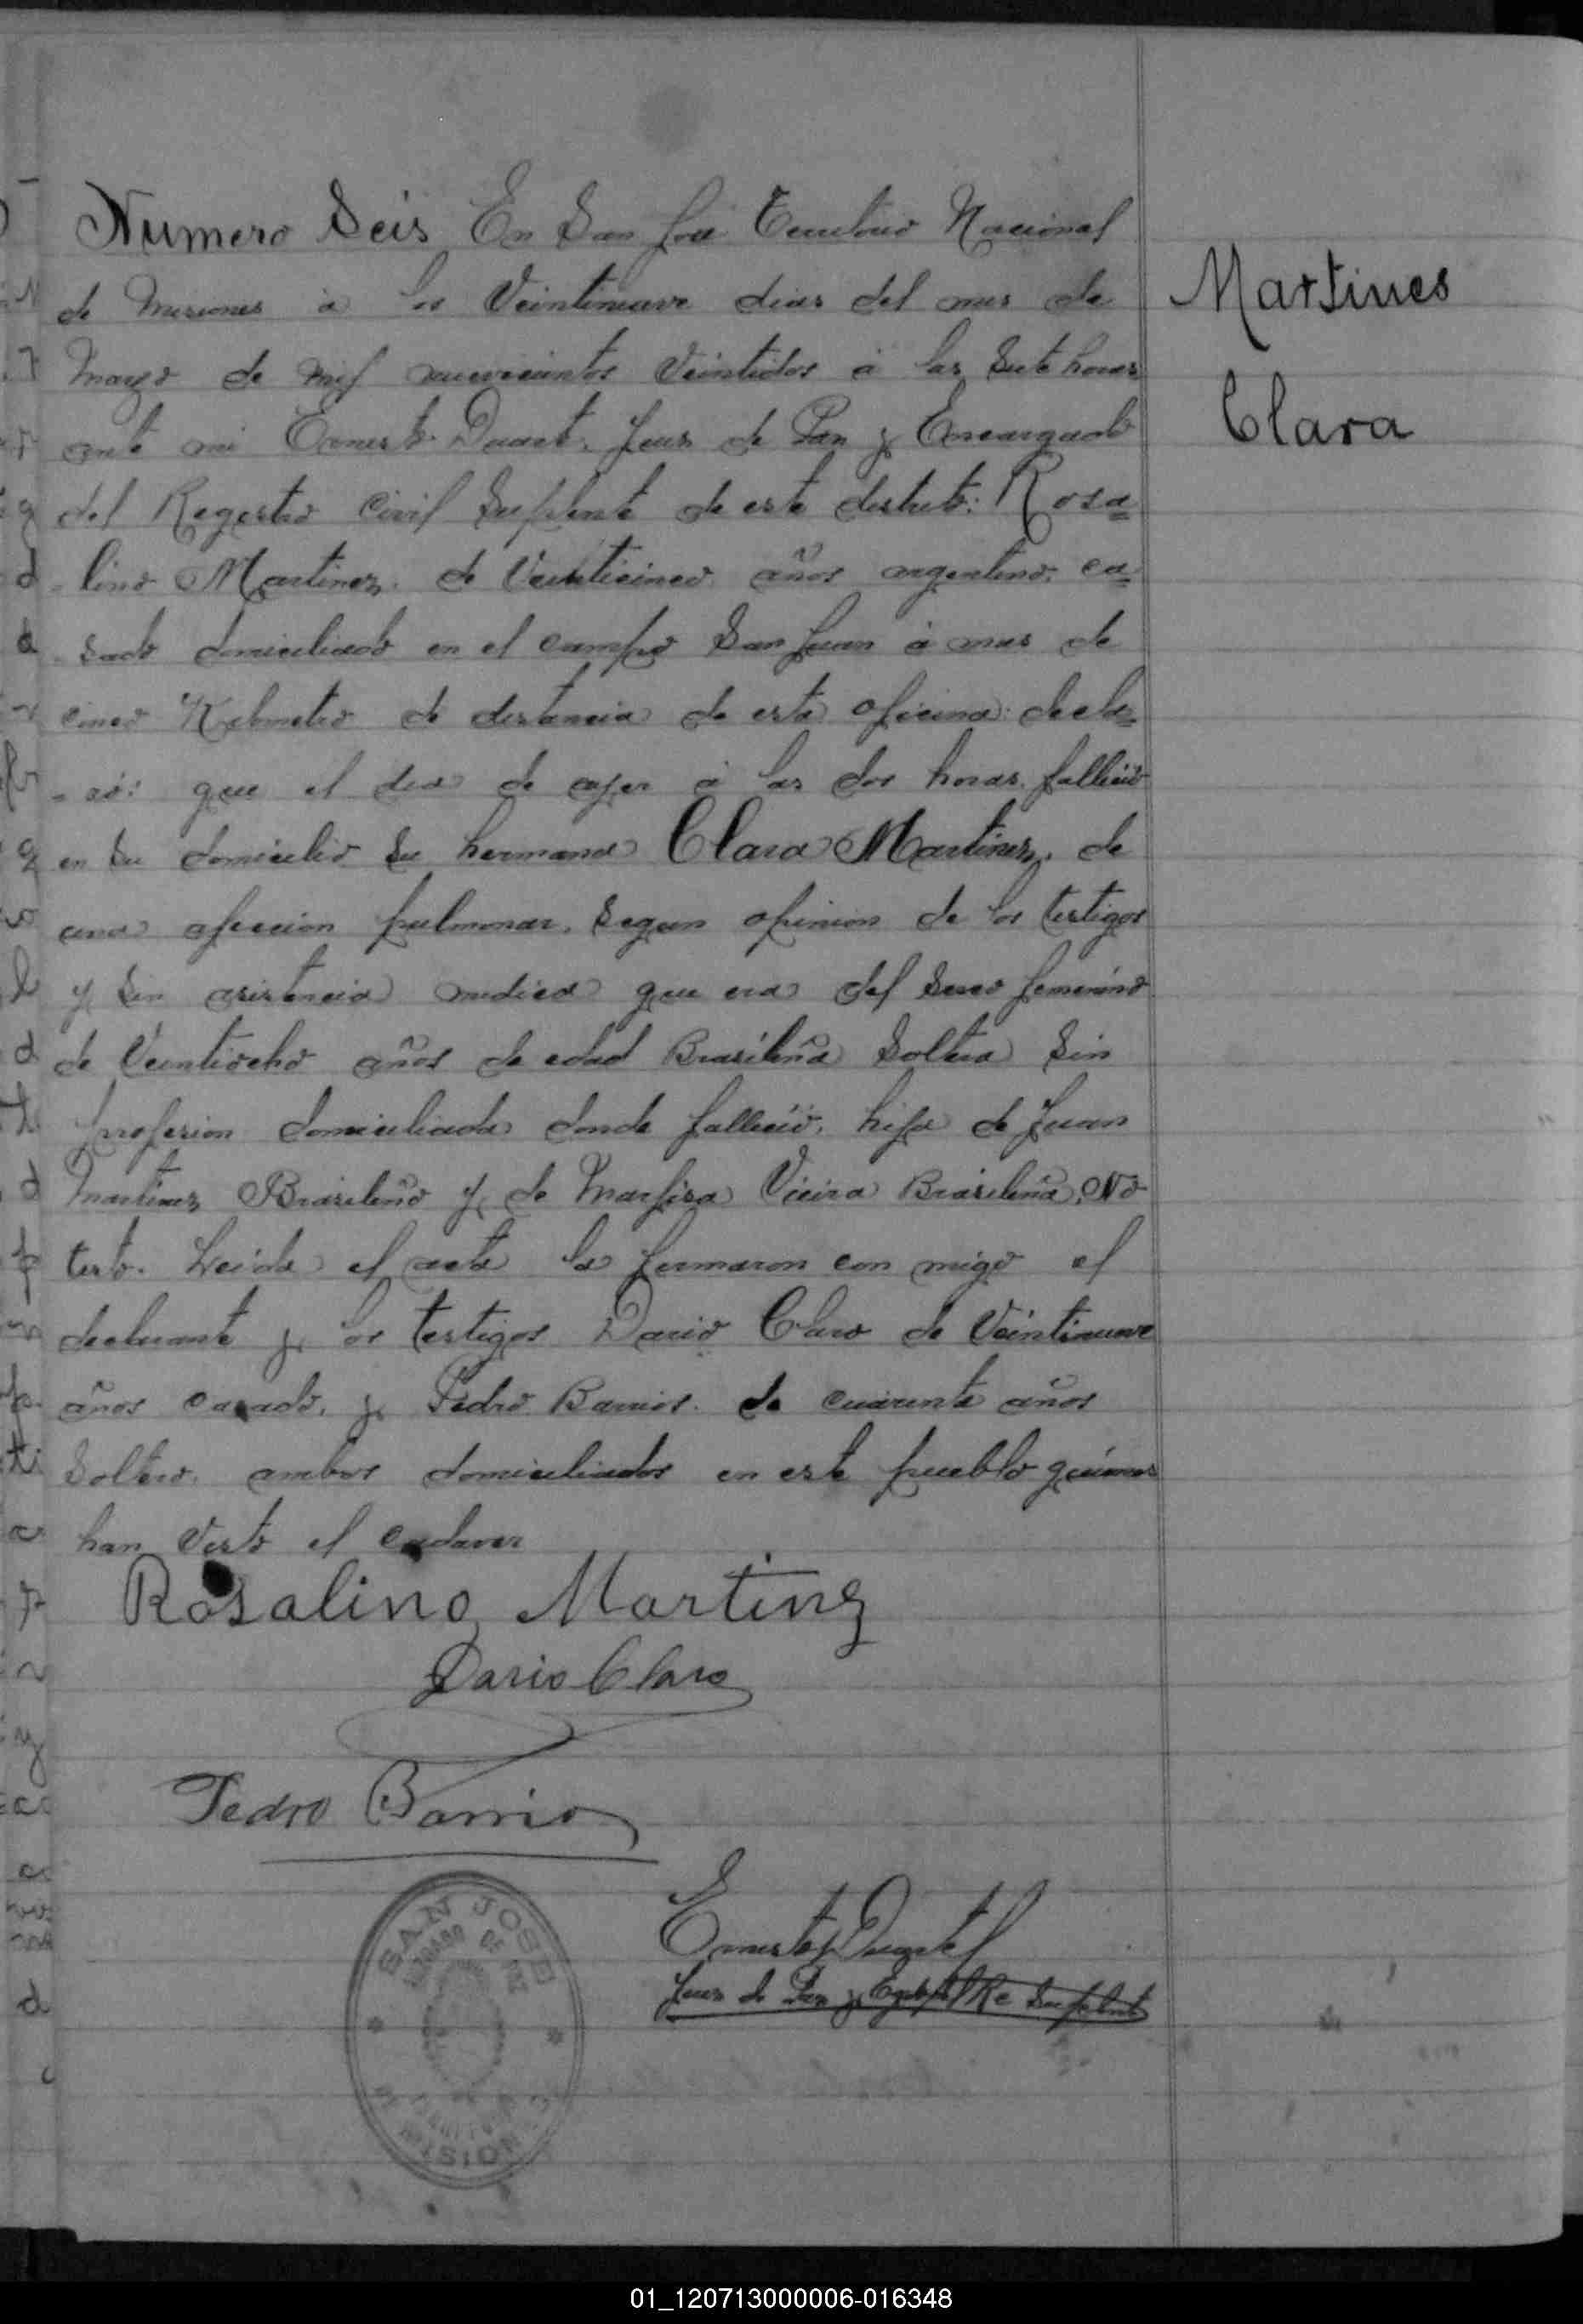 Numero Seis En San José Territorio Nacional
de Misiones á los Veintinueve dias del mes de
Mayo de mil nuevecientos Veintidos á las Siete horas
ante mi Ernesto Duarte. Juez de Paz y Encargado
del Registro Civil Suplente de este distrito: Rosa=
=lino Martinez. de Veinticinco años argentino, ca=
=sado domiciliado en el campo San Juan á mas de
cinco Kilometro de distancia de esta oficina: decla=
=ró: que el dia de ayer á las dos horas. fallició
en Su domicilio Su hermana Clara Martinez. de
una afeccion pulmonar. Segun opinion de los testigos
y Sin asistencia medica que era del Sexo femenino
de Veintiocho años de edad Brasileña Soltera Sin
profesion domiciliada donde fallició. hija de Juan
Martinez Brasileño y de Marfisa Vieira Brasileña. No
testó. Leida el acta la firmaron con migo el
declarante y los testigos Dario Claro de Veintinueve
años casado. y Pedro Barrios. de cuarenta años
Soltero. ambos domiciliados en este pueblo quienes
han Visto el cadaver
Rosalino Martinez
Dario Claro
Pedro Barrio
Ernesto Duarte
Juez de Paz y Suplente
Martines
Clara
SAN JOSE
JUZGADO DE PAZ
01_120713000006-016348